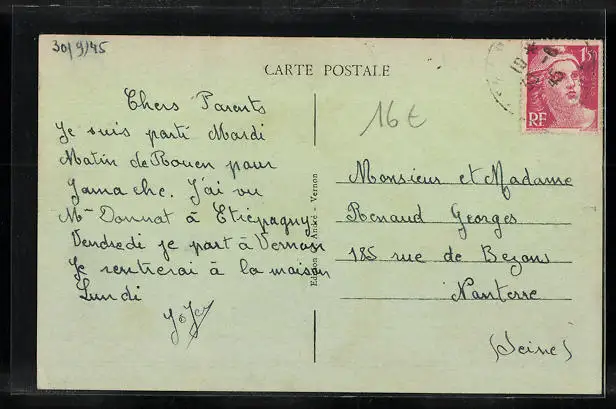 30/9/45
CARTE POSTALE
Chers Parents
Je suis parti Mardi
Matin de Rouen pour
Gamache. J'ai vu
Mr Donnat à Etrepagny
Vendredi je part à Vernon
Je rentrerai à la maison
Lundi
16€
Edition André - Vernon
RF
Monsieur et Madame
Renaud Georges
185 rue de Bezons
Nanterre
(Seine)